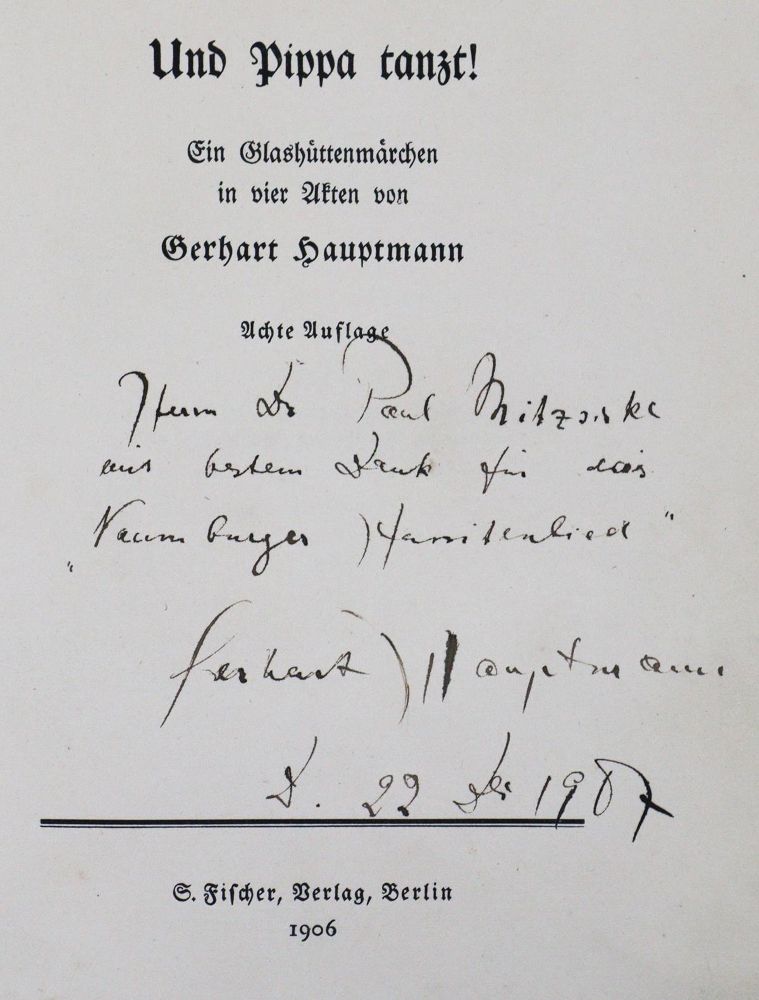 Und Pippa tanzt!
Ein Glashüttenmärchen
in vier Akten von
Gerhart Hauptmann
Achte Auflage
Herrn Dr Paul Mitzschke
mit bestem Dank für das
„Naumburger Hussitenlied"
Gerhart Hauptmann
D. 22 Dec 1907
S. Fischer, Verlag, Berlin
1906